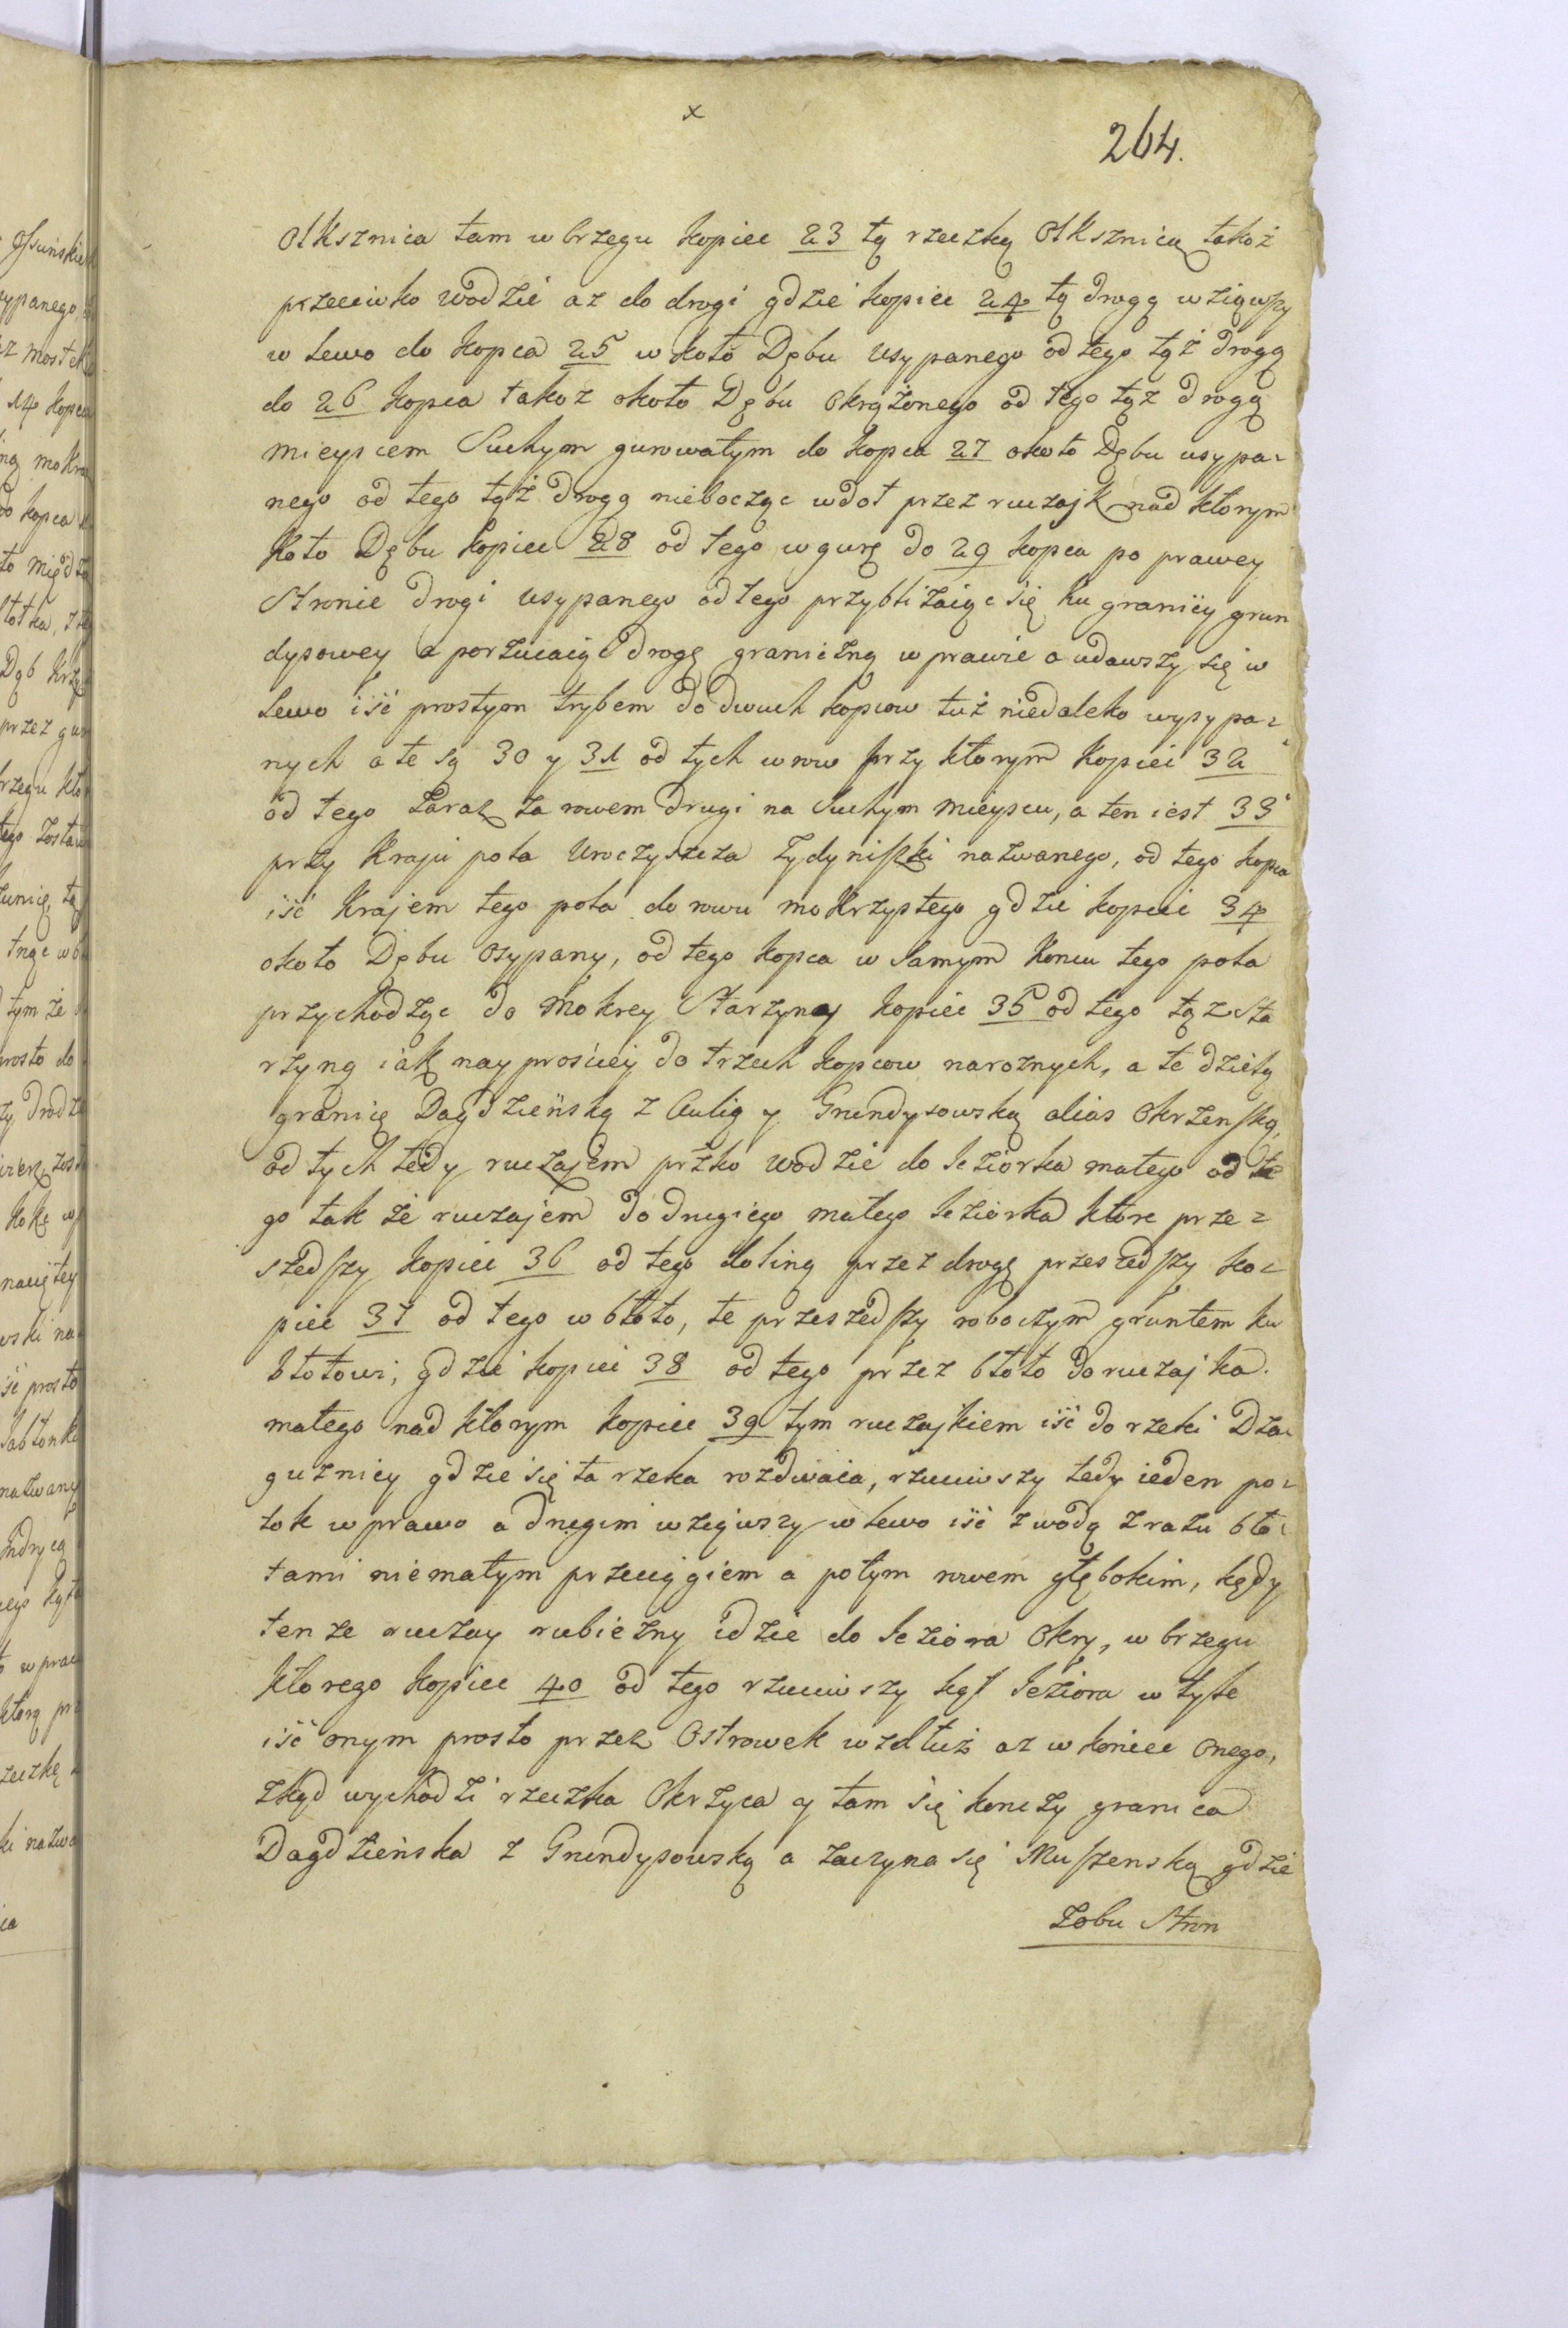 x
264.
Olksznica tam w brzegu kopiec 23 tą rzeczką Olksznicą takoż
przeciwko wodzie az do drogi gdzie kopiec 24 tą drogą wziąwszy
w lewo do kopca 25 w koło Dębu usypanego od tego tąż drogą
do 26 kopca takoż około Dębu okrążonego od tego tąż drogą
mieyscem Suchym gurowatym do kopca 27 około Dębu usypa-
nego od tego tąż drogą niebocząc w doł przez ruczajk nad ktorym
koło Dębu kopiec 28 od tego w gurę do 29 kopca po prawey
Stronie drogi usypanego od tego przybliżaiąc się ku granicy grun
dysowey a porzucaiąc drogę graniczną w prawie a udawszy się w
lewo iść prostym trybem do dwuch kopcow tuż niedaleko wysypa-
nych a te są 30 y 31 od tych w row przy ktorym kopiec 32
od tego zaraz za rowem drugi na Suchym mieyscu, a ten iest 33
przy kraju pola Uroczyszcza Zydyniszki nazwanego, od tego kopca
iść krajem tego pola do rowu mokrzystego gdzie kopiec 34
około Dębu osypany, od tego kopca w samym koncu tego pola
przychodząc do mokrey Starzyny kopiec 35 od tego tąż Sta
rzyną iak nayprościey do trzech kopcow narożnych, a te dzielą
granicę Dagdzieńską z Aulią y Grundysowską alias Okrzenską,
od tych tedy ruczajem przko wodzie do Jeziorka małego od te
go tak że ruczajem do drugiego małego Jeziorka ktore prze-
szedszy kopiec 36 od tego doliną przez drogę przeszedszy ko-
piec 37 od tego w błoto, te przeszedszy roboczym gruntem ku
błotowi, gdzie kopiec 38 od tego przez błoto do ruczajka
małego nad ktorym kopiec 39 tym ruczajkiem iść do rzeki Dza-
guznicy gdzie się ta rzeka rozdwaia, rzuciwszy tedy ieden po-
tok w prawo a drugim wziąwszy w lewo iść z wodą zrazu bło-
tami niemałym przeciągiem a potym rowem głębokim, kędy
tenże ruczay rubieżny idzie do Jeziora Okry, w brzegu
ktorego kopiec 40 od tego rzuciwszy kąt Jeziora w tyle
iść onym prosto przez Ostrowek wzdłuż az w koniec onego,
zkąd wychodzi rzeczka Okrzyca y tam się konczy granica
Dagdzieńska z Grundysowską a zaczyna się Muszenską gdzie
zobu Stron